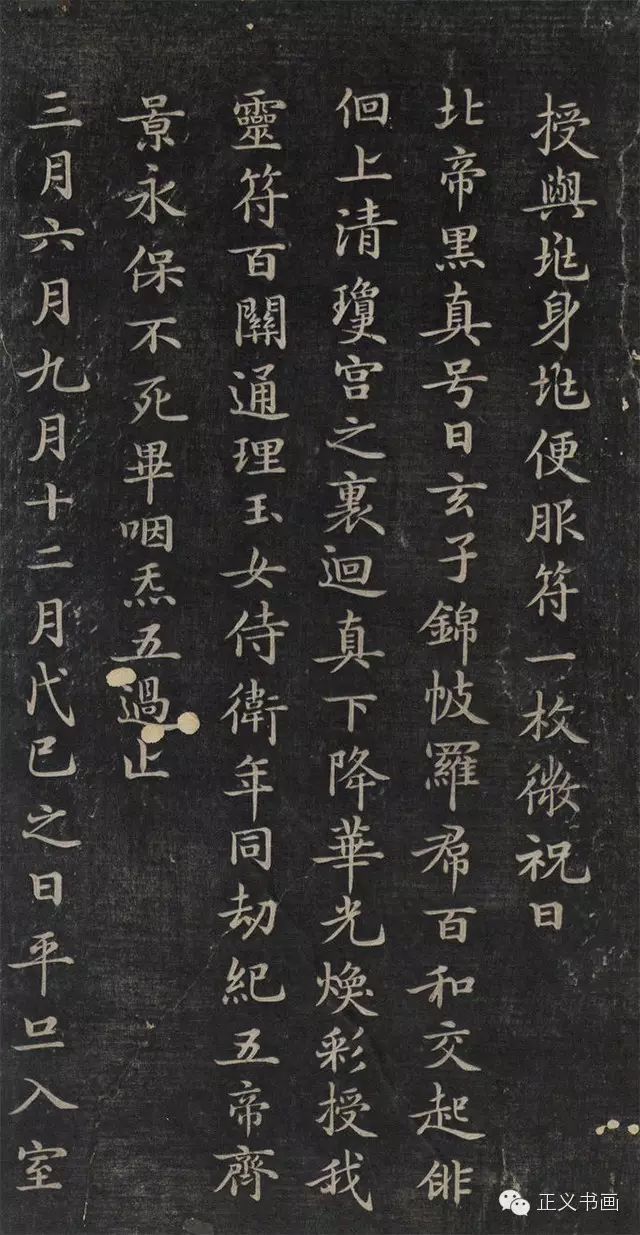 授與垗身垗便服符一枚微祝曰
北帝黑真号曰玄子錦帔羅帬百和交起俳
佪上清瓊宫之裏迴真下降華光煥彩授我
靈符百關通理玉女侍衛年同劫紀五帝齊
景永保不死畢咽炁五過止
三月六月九月十二月代巳之日平旦入室
正义书画